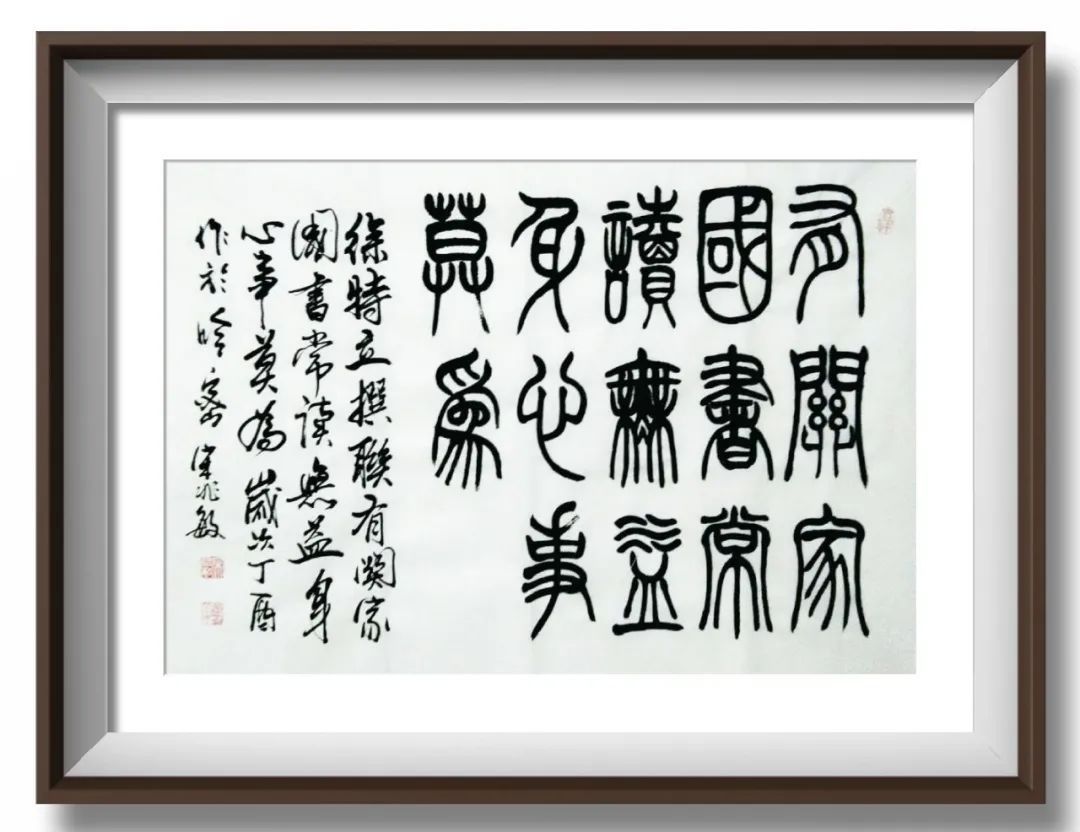 有關家
國書常
讀無益
身心事
莫爲
徐特立撰聯有關家
國書常读無益身
心事莫為歲次丁酉
作於